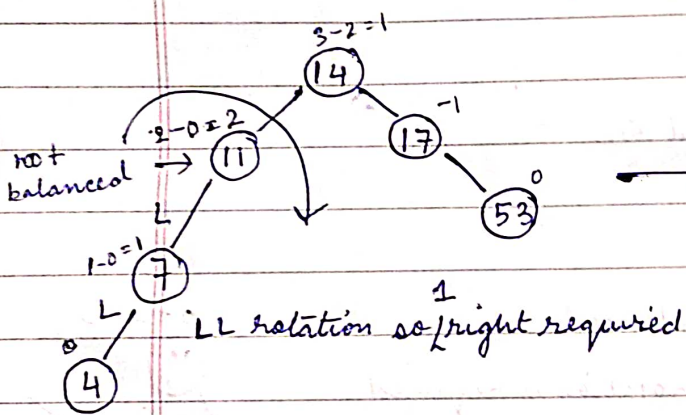 3-2=1
14
-1
17
2-0=2
not
balanced
11
0
53
L
1-0=1
7
L
1
LL rotation so right required
0
4